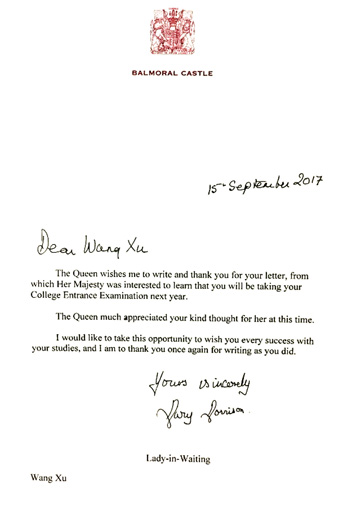 BALMORAL CASTLE
15th September 2017
Dear Wang Xu
The Queen wishes me to write and thank you for your letter, from
which Her Majesty was interested to learn that you will be taking your
College Entrance Examination next year.
The Queen much appreciated your kind thought for her at this time.
I would like to take this opportunity to wish you every success with
your studies, and I am to thank you once again for writing as you did.
Yours sincerely
Mary Morrison.
Lady-in-Waiting
Wang Xu